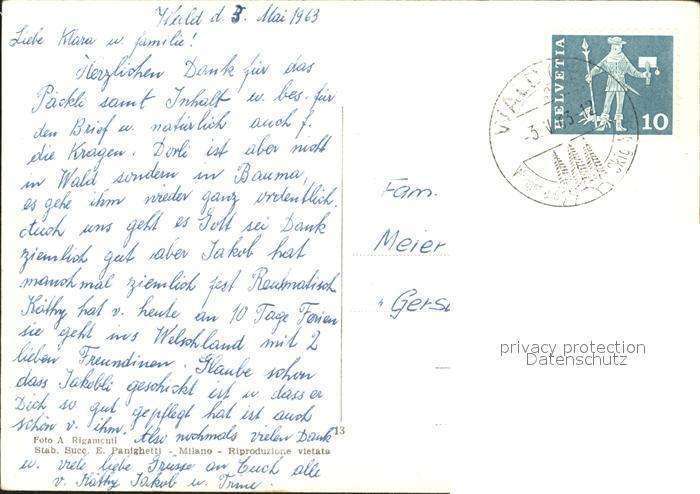 Wald d. 3. Mai 1963
Liebe Klara u. familie!
Herzlichen Dank für das
Päckli samt Inhalt u. bes. für
den Brief u. natürlich auch f.
die Kragen. Dorli ist aber nicht
in Wald sondern in Bauma,
es gehe ihm wieder ganz ordentlich.
Auch uns geht es Gott sei Dank
ziemlich gut aber Jakob hat
manchmal ziemlich fest Reumatisch
Käthy hat v. heute an 10 Tage Ferien
sie geht ins Welschland mit 2
lieben Freundinen. Glaube schon
dass Jakobli geschickt ist u. dass er
Dich so gut gepflegt hat ist auch
schön v. ihm. Also nochmals vielen Dank
u. viele liebe Grüsse an Euch alle
v. Käthy Jakob u. Irma.
13
Foto A. Rigamenti
Stab. Succ. E. Panighetti - Milano - Riproduzione vietata
HELVETIA
10
WALD
-3.V.63-
Fam.
Meier
Gers
privacy protection
Datenschutz